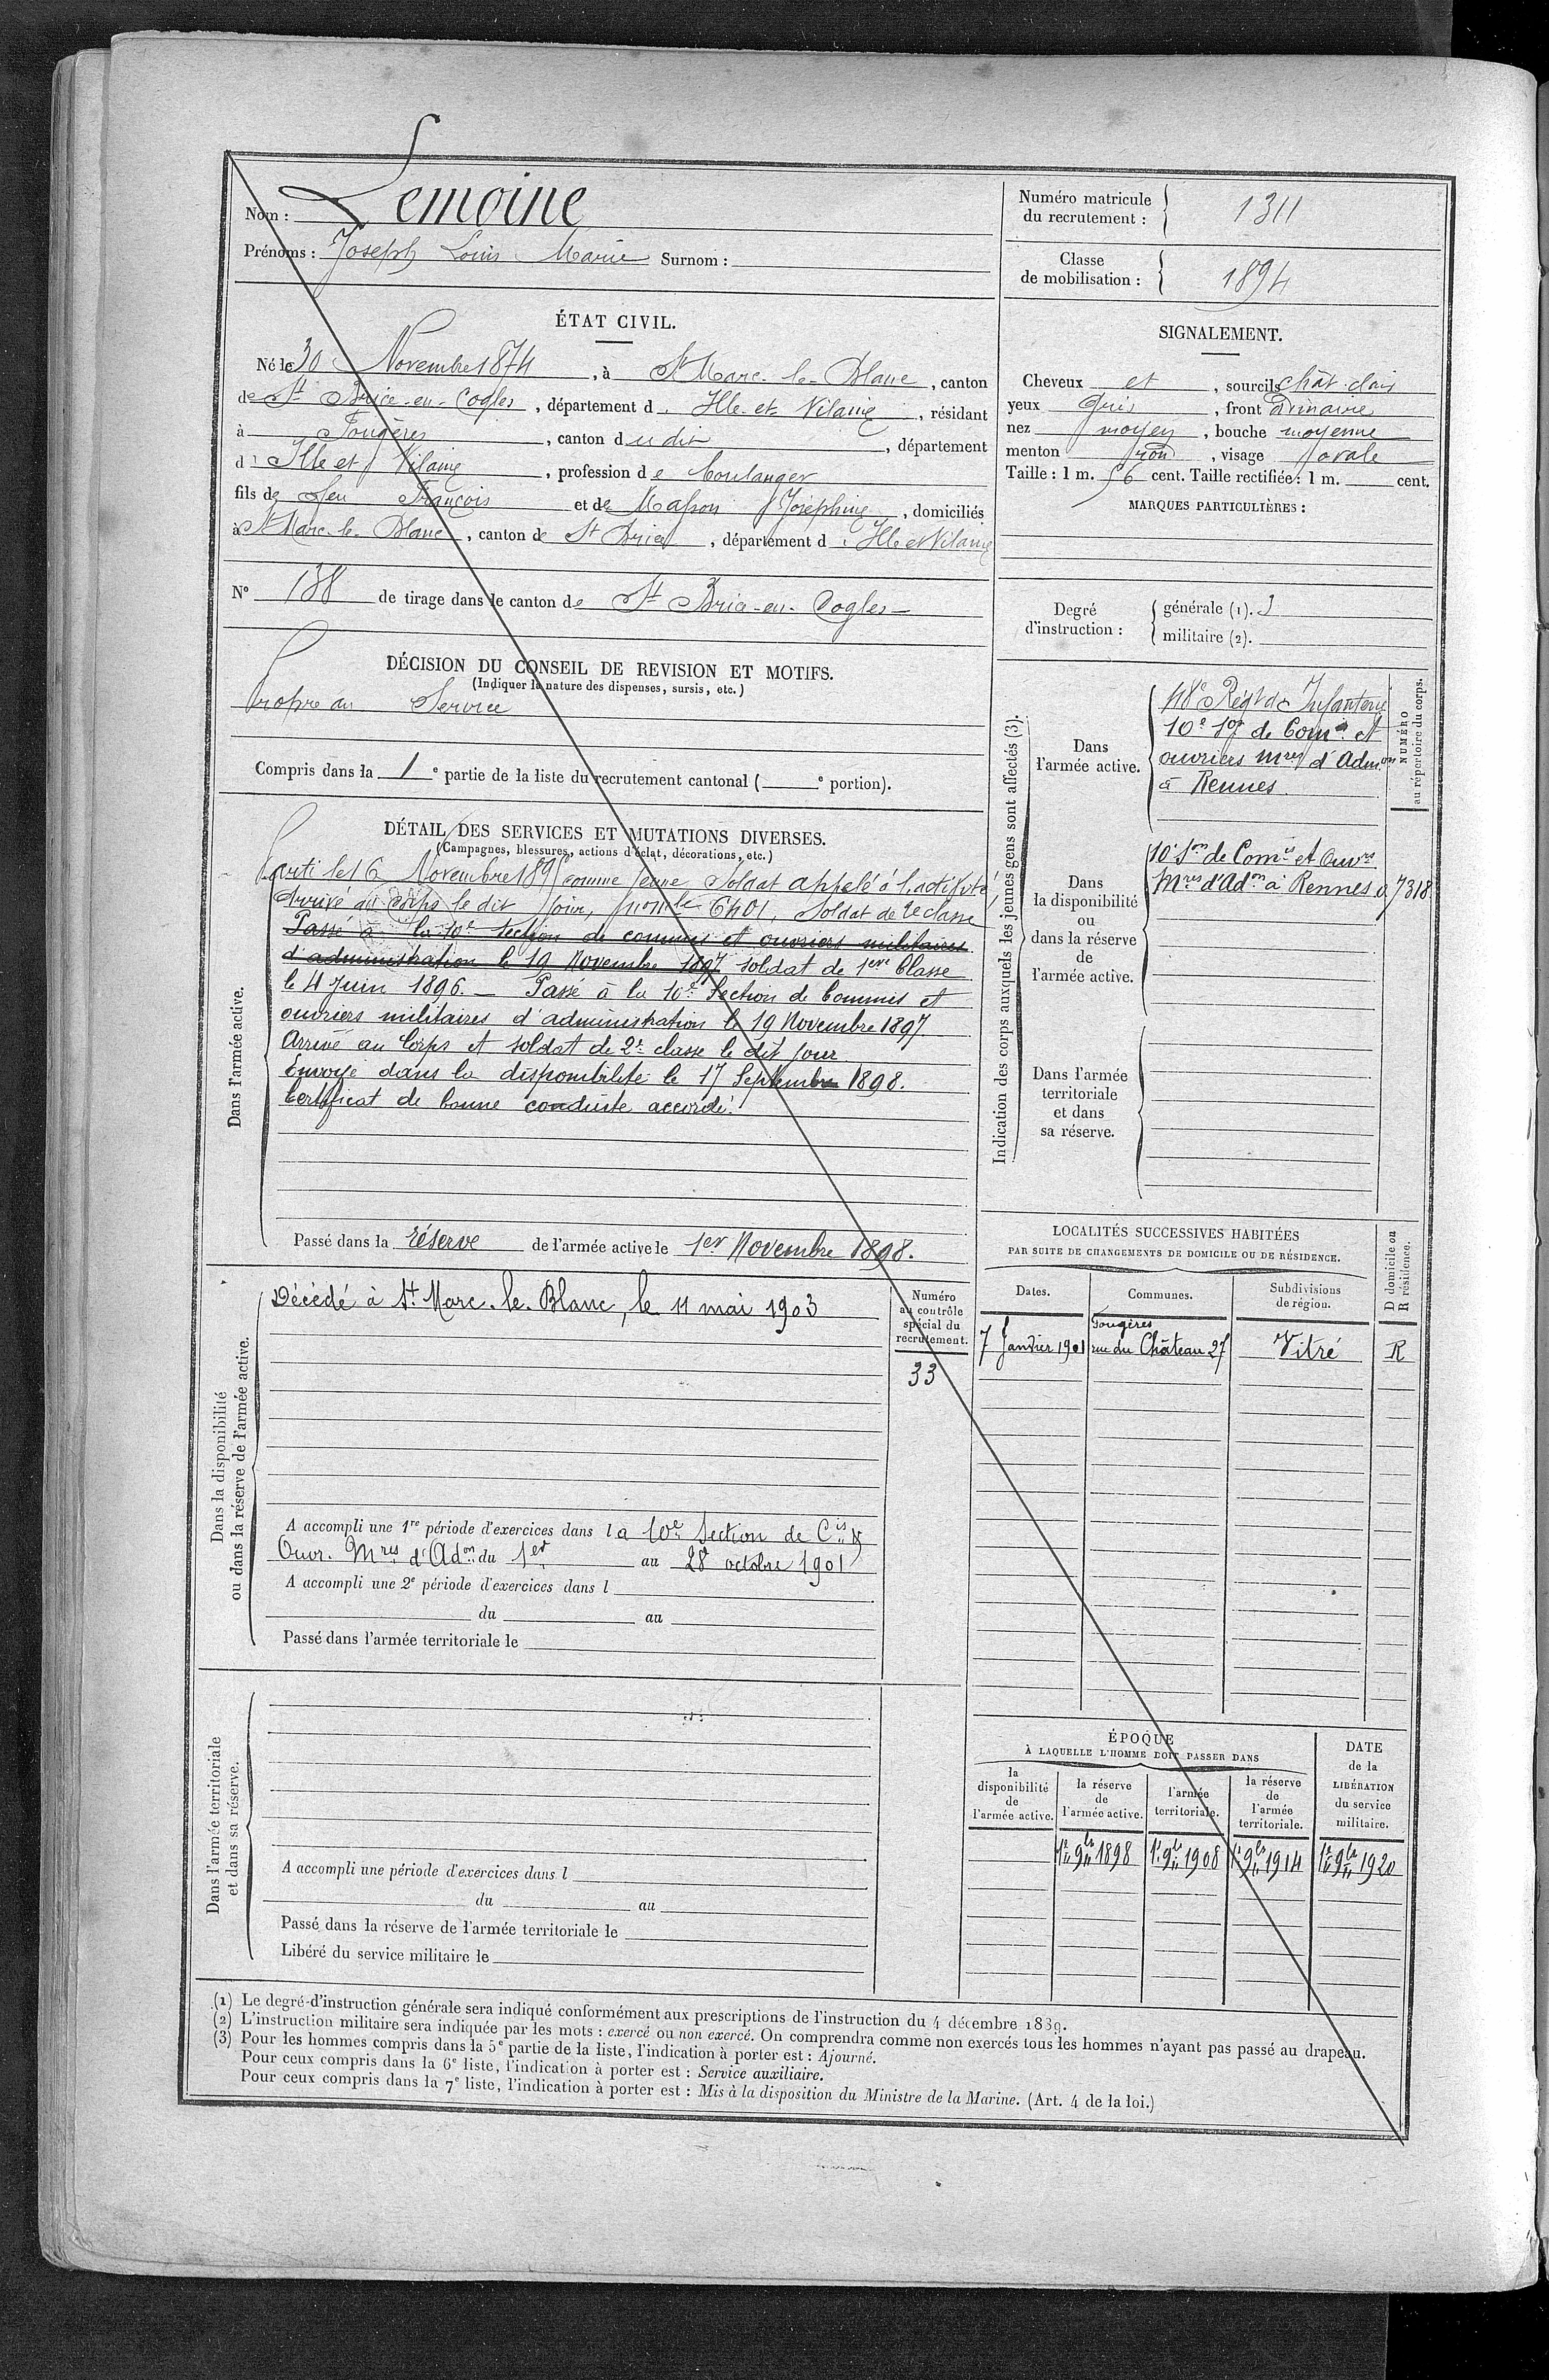 Nom : Lemoine
Prénoms : Joseph Louis Marie Surnom :
Numéro matricule du recrutement : 1311
Classe de mobilisation : 1894
ÉTAT CIVIL.
Né le 30 Novembre 1874, à St Marc-le-Blanc, canton
de St Brice-en-Cogles, département d'Ille-et-Vilaine, résidant
à Fougères, canton dudit, département
d'Ille et Vilaine, profession de boulanger
fils de feu François et de Masson Joséphine, domiciliés
à St Marc-le-Blanc, canton de St Brice, département d'Ille et Vilaine
N° 138 de tirage dans le canton de St Brice-en-Cogles
SIGNALEMENT.
Cheveux et, sourcils chât. clair
yeux gris, front ordinaire
nez moyen, bouche moyenne
menton rond, visage ovale
Taille : 1 m. 56 cent. Taille rectifiée : 1 m. cent.
MARQUES PARTICULIÈRES :
Degré d'instruction :
générale (1). 3
militaire (2).
DÉCISION DU CONSEIL DE REVISION ET MOTIFS.
(Indiquer la nature des dispenses, sursis, etc.)
Propre au Service
Compris dans la 1e partie de la liste du recrutement cantonal ( e portion).
DÉTAIL DES SERVICES ET MUTATIONS DIVERSES.
(Campagnes, blessures, actions d'éclat, décorations, etc.)
Dans l'armée active.
Parti le 16 Novembre 1895 comme jeune Soldat appelé à l'activité
Arrivé au corps le dit jour, nº mle 6401, Soldat de 2e classe
Passé à la 10e Section de commis et ouvriers militaires
d'administration le 19 Novembre 1897 soldat de 1ere Classe
le 4 Juin 1896. — Passé à la 10e Section de Commis et
ouvriers militaires d'administration le 19 Novembre 1897
Arrivé au Corps et soldat de 2e classe le dit jour.
Envoyé dans la disponibilité le 17 Septembre 1898.
Certificat de bonne conduite accordé.
Passé dans la réserve de l'armée active le 1er Novembre 1898.
Indication des corps auxquels les jeunes gens sont affectés (3).
NUMÉRO au répertoire du corps.
Dans l'armée active.
48e Régt d'Infanterie
10e Son de Comis et
ouvriers mres d'Admon
à Rennes.
Dans la disponibilité ou dans la réserve de l'armée active.
10e Son de Comis et Ouvrs
Mres d'Adon à Rennes 07318
Dans l'armée territoriale et dans sa réserve.
Dans la disponibilité ou dans la réserve de l'armée active.
Décédé à St. Marc-le-Blanc, le 11 mai 1903
Numéro au contrôle spécial du recrutement.
33
A accompli une 1re période d'exercices dans la 10e Section de Cis &
Ouvr. Mres d'Adon du 1er au 28 octobre 1901
A accompli une 2e période d'exercices dans l
du au
Passé dans l'armée territoriale le
LOCALITÉS SUCCESSIVES HABITÉES
PAR SUITE DE CHANGEMENTS DE DOMICILE OU DE RÉSIDENCE.
D domicile ou R résidence.
Dates. Communes. Subdivisions de région.
7 Janvier 1901 Fougères rue du Château 27 Vitré R
Dans l'armée territoriale et dans sa réserve.
A accompli une période d'exercices dans l
du au
Passé dans la réserve de l'armée territoriale le
Libéré du service militaire le
ÉPOQUE
À LAQUELLE L'HOMME DOIT PASSER DANS
la disponibilité de l'armée active.
la réserve de l'armée active.
l'armée territoriale.
la réserve de l'armée territoriale.
DATE de la LIBÉRATION du service militaire.
1er 9bre 1898 1er 9bre 1908 1er 9bre 1914 1er 9bre 1920
(1) Le degré d'instruction générale sera indiqué conformément aux prescriptions de l'instruction du 4 décembre 1889.
(2) L'instruction militaire sera indiquée par les mots : exercé ou non exercé. On comprendra comme non exercés tous les hommes n'ayant pas passé au drapeau.
(3) Pour les hommes compris dans la 5e partie de la liste, l'indication à porter est : Ajourné.
Pour ceux compris dans la 6e liste, l'indication à porter est : Service auxiliaire.
Pour ceux compris dans la 7e liste, l'indication à porter est : Mis à la disposition du Ministre de la Marine. (Art. 4 de la loi.)